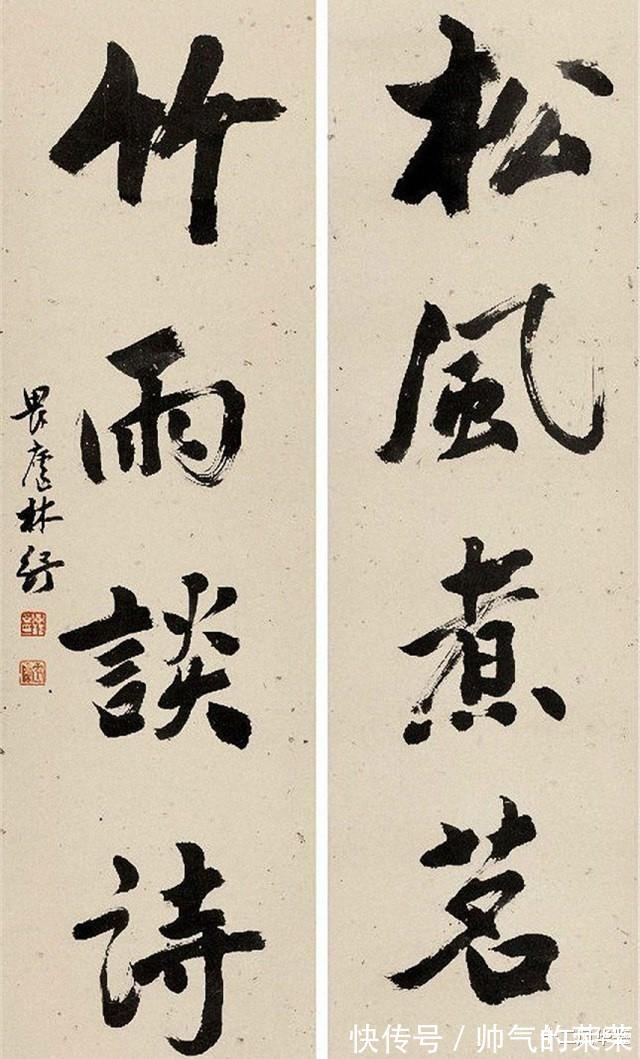 松風煮茗
竹雨談詩
畏廬林紓
快传号 / 帅气的菜菜